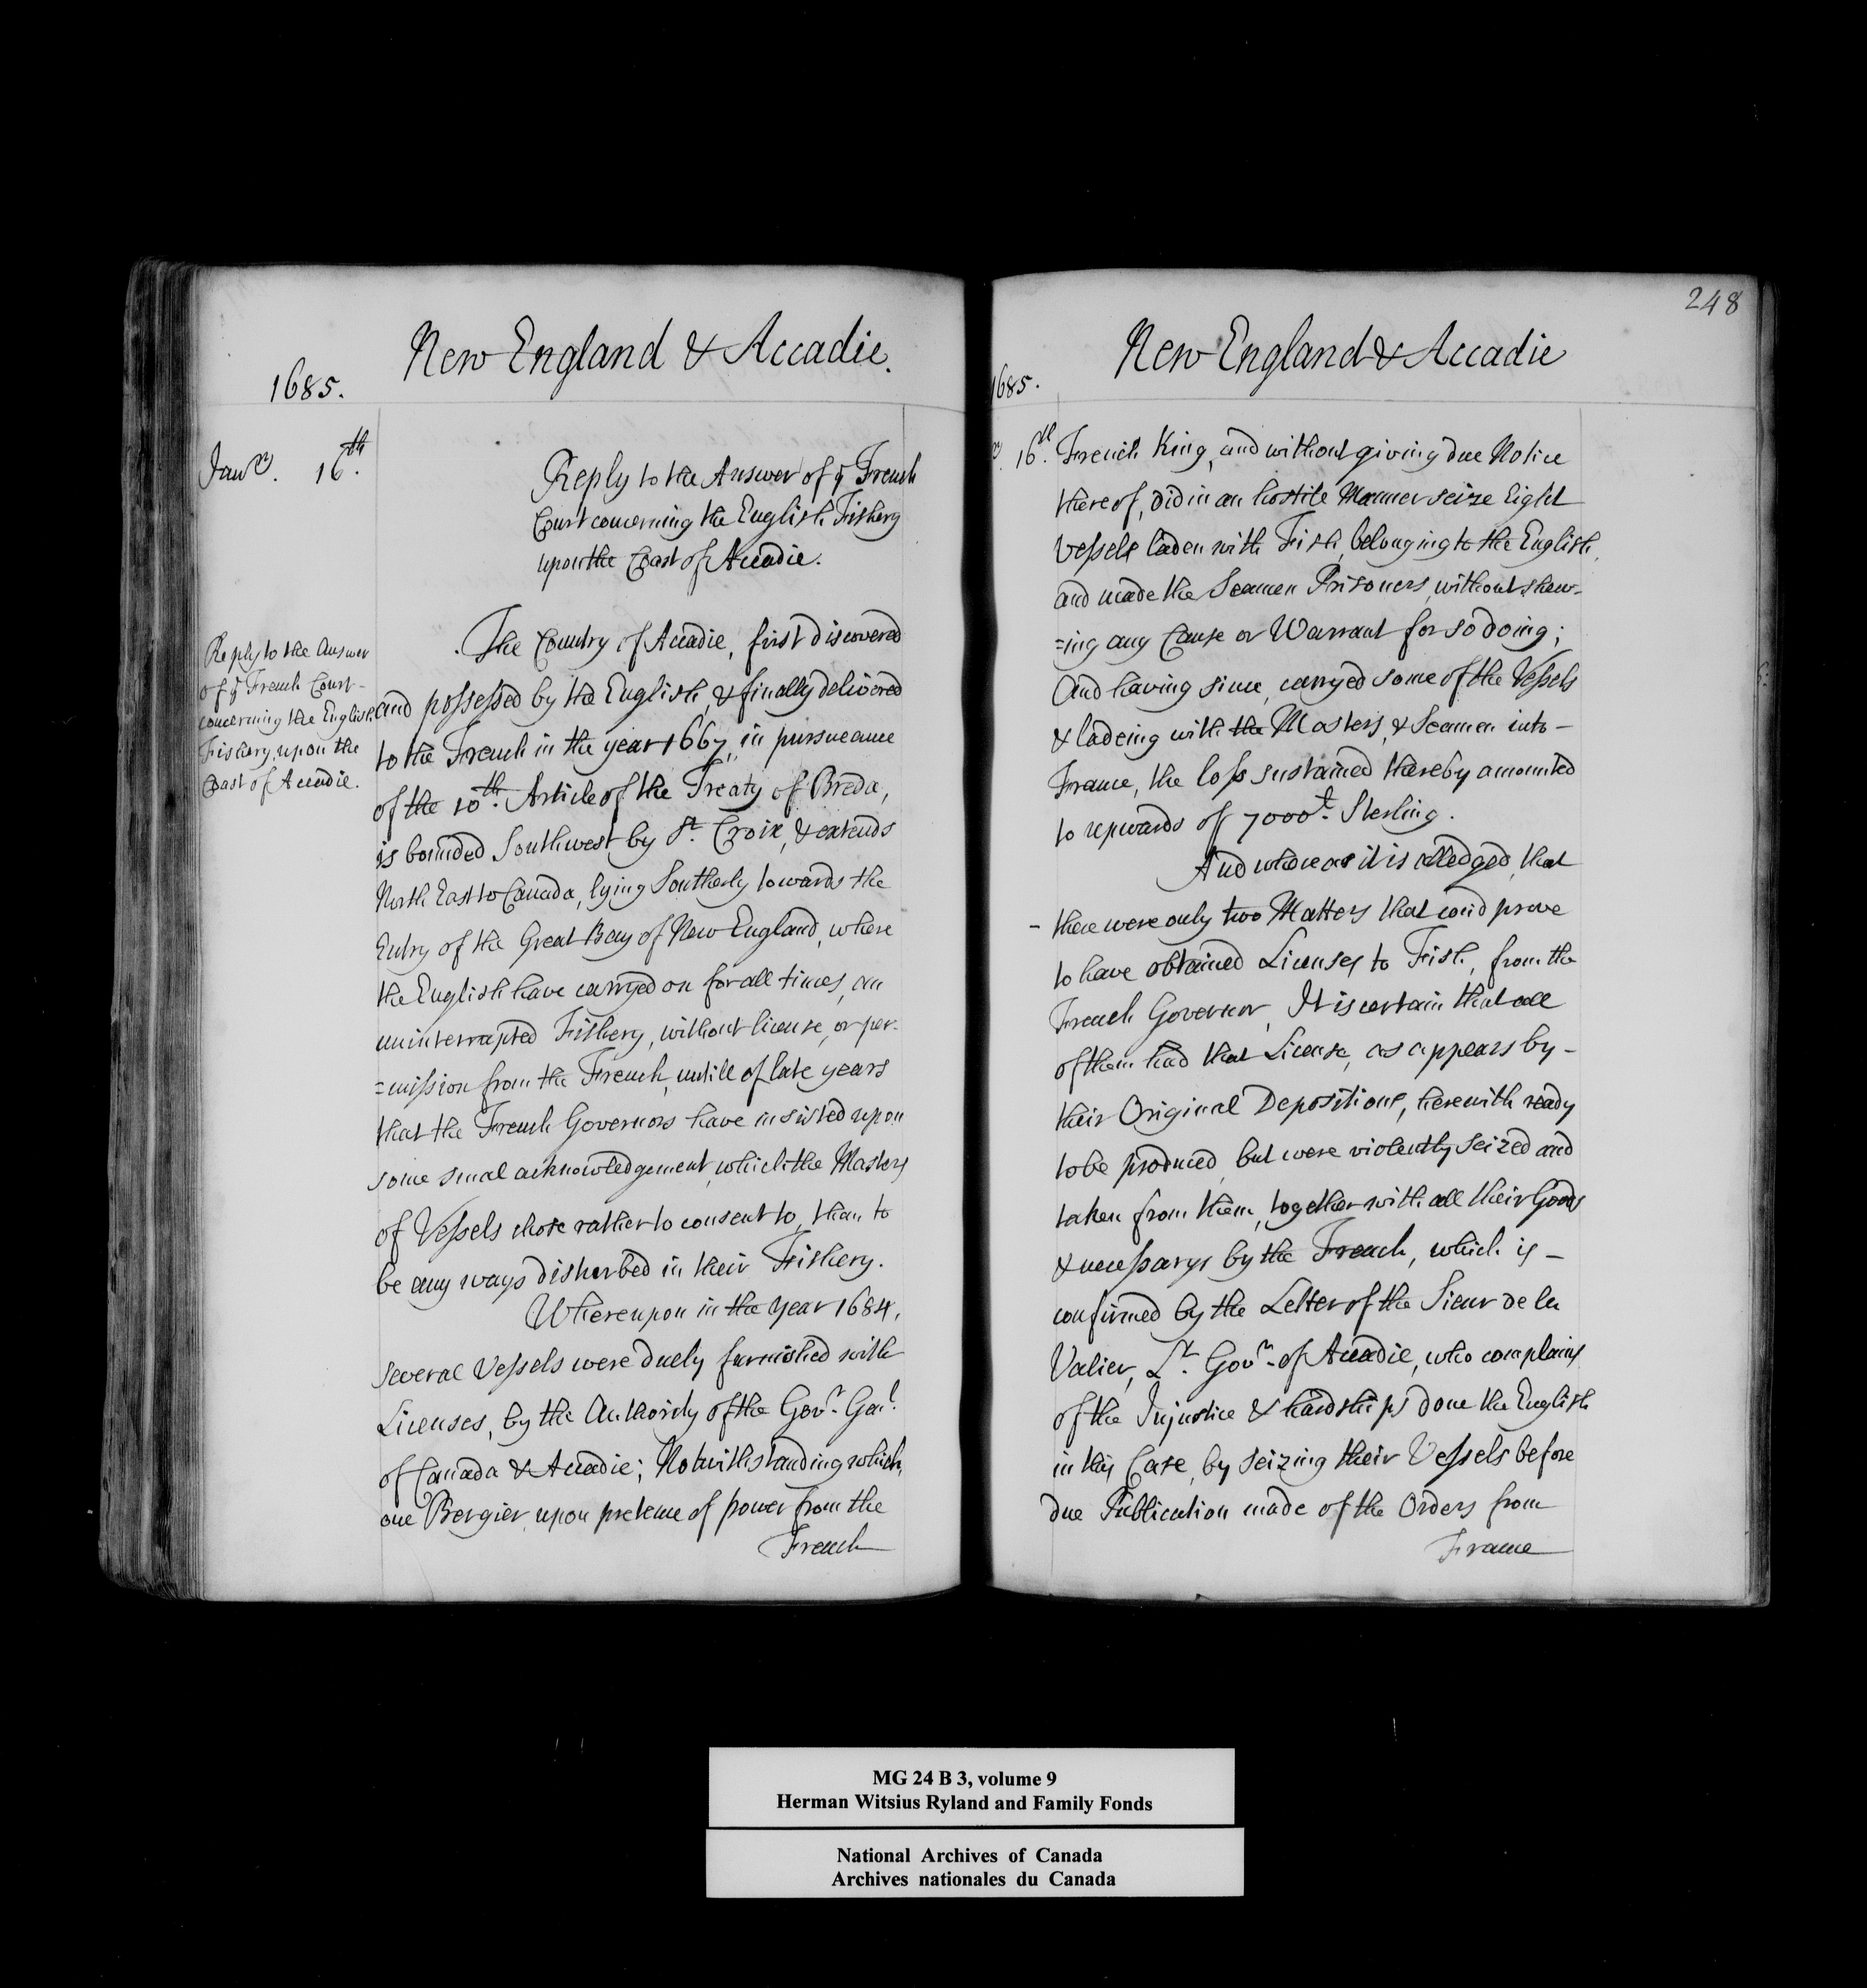 New England & Accadie.
1685.
Janry. 16th.
Reply to the Answer of ye French
Court concerning the English Fishery
upon the Coast of Accadie.
Reply to the Answer
of ye French Court -
concerning the English
Fishery upon the
Coast of Accadie.
The Country of Accadie, first discovered
and possessed by the English, & finally delivered
to the French in the year 1667, in pursueance
of the 10th. Article of the Treaty of Breda,
is bounded Southwest by St. Croix, & extends
North East to Canada, lying Southerly towards the
Entry of the Great Bay of New England, where
the English have carryed on for all times, an
uninterrapted Fishery, without license, or per-
=mission from the French, untill of late years
that the French Governors have insisted upon
some smal acknowledgement, which the Masters
of Vessels chose rather to consent to, than to
be any ways disturbed in their Fishery.
Whereupon in the year 1684,
several Vessels were duely furnished with
Licenses, by the Authority of the Govr. Genl.
of Canada & Accadie; Notwithstanding which,
one Bergier, upon pretence of power from the
French
248
New England & Accadie
1685.
16th.
French King, and without giving due Notice
thereof, did in an hostile Manner seize Eight
Vessels laden with Fish, belonging to the English,
and made the Seamen Prisoners, without shew-
=ing any Cause or Warrant for so doing;
And having since, carryed some of the Vessels
& ladeing with the Masters, & Seamen into -
France, the loss sustained thereby amounted
to upwards of 7000£. Sterling.
And whereas it is alledged, that
- there were only two Matters that coud prove
to have obtained Licenses to Fish, from the
French Governor, It is certain that all
of them had that License, as appears by -
their Original Depositions, herewith ready
to be produced, but were violently seized and
taken from them, together with all their Goods
& necessarys by the French, which is -
confirmed by the Letter of the Sieur de la
Valier, Lt. Govr. of Accadie, who complains
of the Injustice & hardships done the English
in this Case, by seizing their Vessels before
due Publication made of the Orders from
France
MG 24 B 3, volume 9
Herman Witsius Ryland and Family Fonds
National Archives of Canada
Archives nationales du Canada